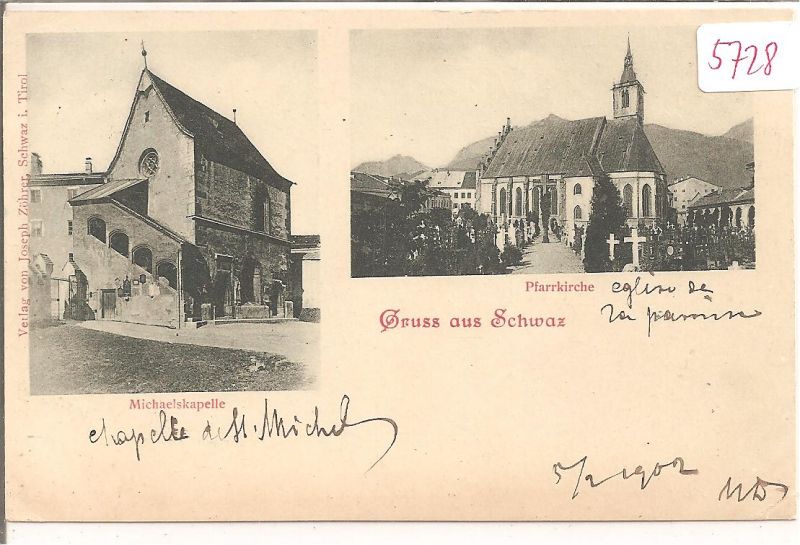 5728
Verlag von Joseph Zöhrer, Schwaz i. Tirol
Pfarrkirche
eglise de
la paroisse
Gruss aus Schwaz
Michaelskapelle
chapelle de St. Michel
5/2 1902